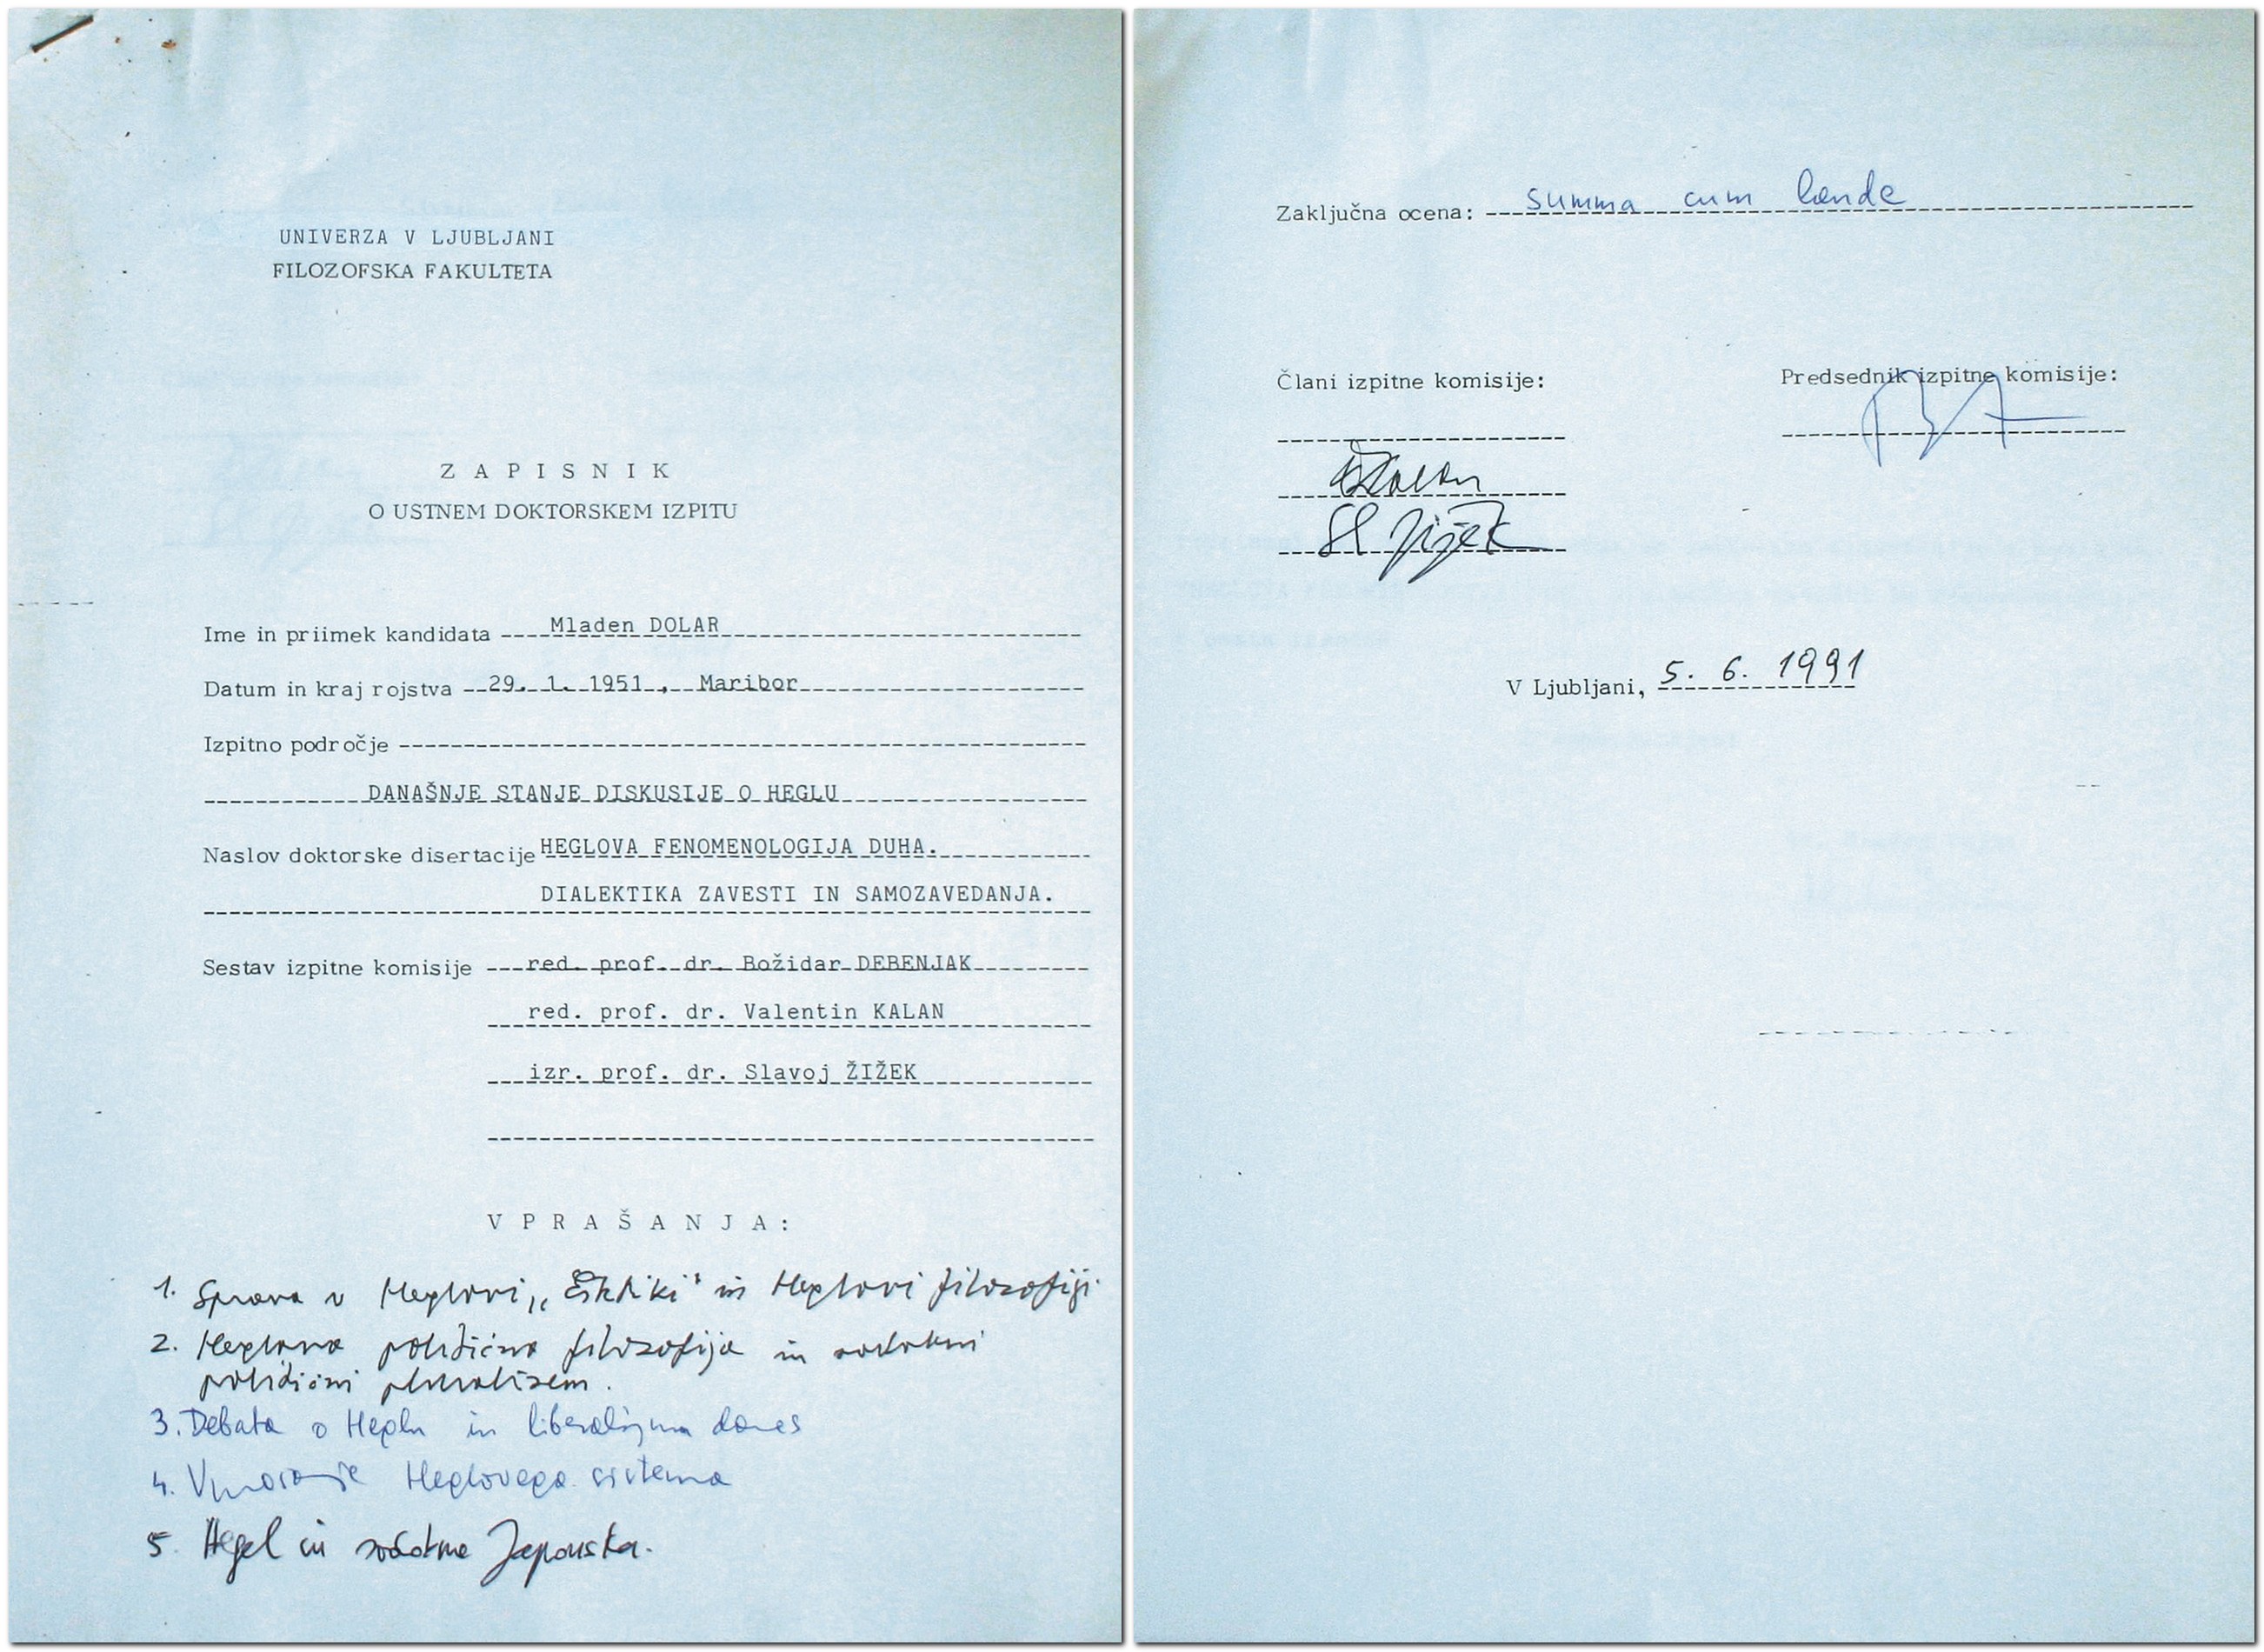 UNIVERZA V LJUBLJANI
FILOZOFSKA FAKULTETA
ZAPISNIK
O USTNEM DOKTORSKEM IZPITU
Ime in priimek kandidata Mladen DOLAR
Datum in kraj rojstva 29. 1. 1951, Maribor
Izpitno področje
DANAŠNJE STANJE DISKUSIJE O HEGLU
Naslov doktorske disertacije HEGLOVA FENOMENOLOGIJA DUHA.
DIALEKTIKA ZAVESTI IN SAMOZAVEDANJA.
Sestav izpitne komisije red. prof. dr. Božidar DEBENJAK
red. prof. dr. Valentin KALAN
izr. prof. dr. Slavoj ŽIŽEK
VPRAŠANJA:
1. Sprava v Heglovi „Estetiki“ in Heglovi filozofiji
2. Heglova politična filozofija in sodobni
politični pluralizem.
3. Debata o Heglu in liberalizmu danes
4. Heglovega sistema
5. Hegel in sodobna Japonska.
Zaključna ocena: summa cum laude
Člani izpitne komisije:
Predsednik izpitne komisije:
VKalan
Sl Žižek
V Ljubljani, 5. 6. 1991